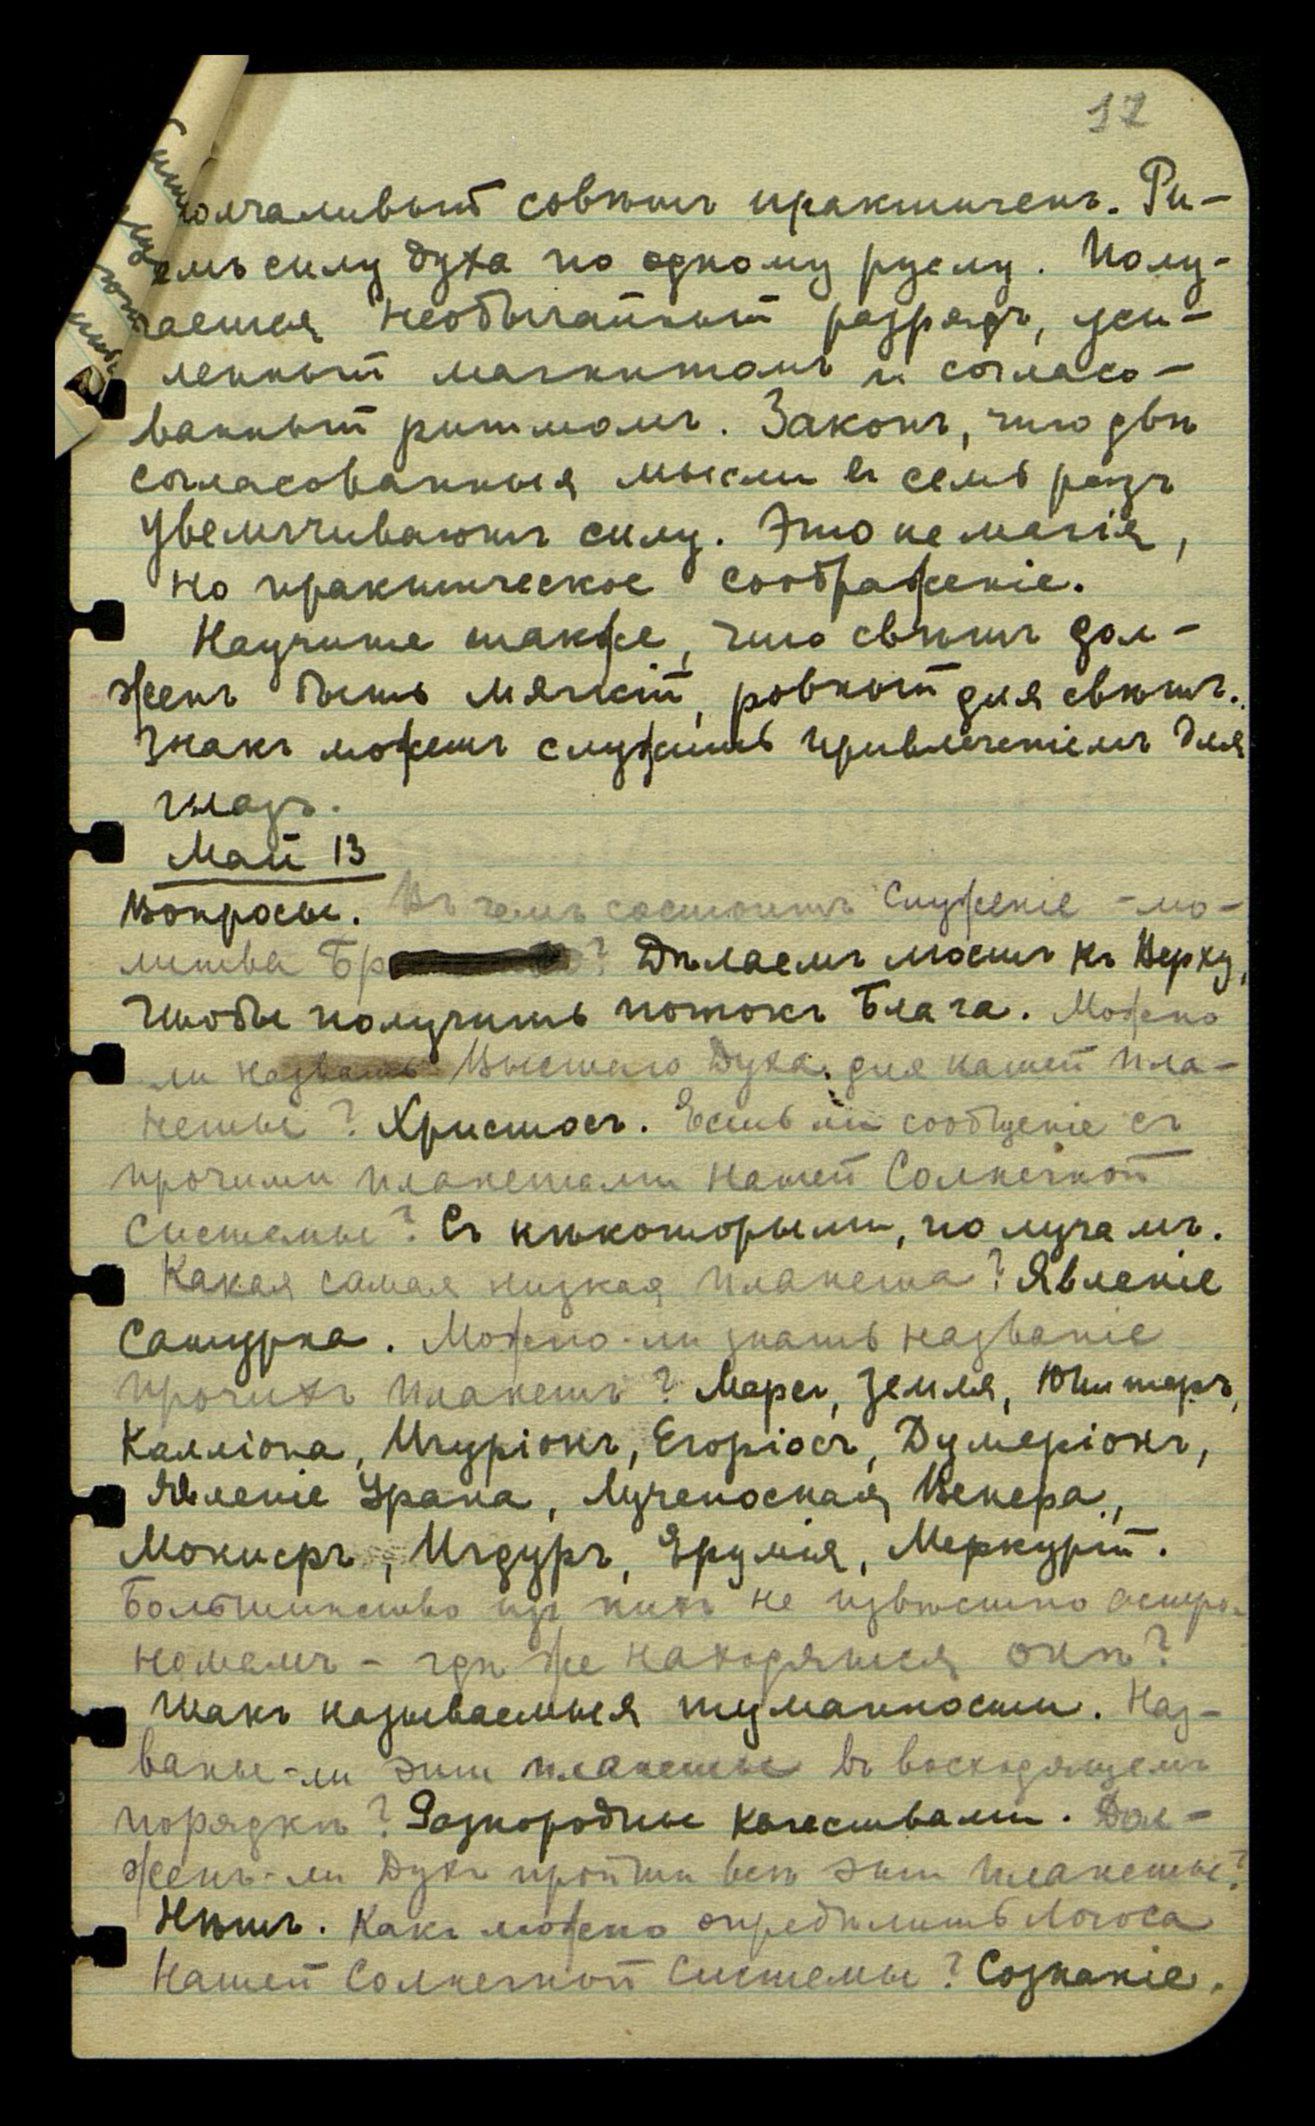 12
молчаливый совѣтъ практиченъ. Ри-
емъ силу духа по одному руслу. Полу-
чается необычайный разрядъ, уси-
ленный магнитомъ и согласо-
ванный ритмомъ. Законъ, что двѣ
согласованныя мысли въ семь разъ
увеличиваютъ силу. Это не магія,
но практическое соображеніе.
Научите также, что свѣтъ дол-
женъ быть мягкій, ровный для свѣтъ.
Знакъ можетъ служить привлеченіемъ для
глазъ.
Май 13
Вопросы. Въ чемъ состоитъ Служеніе - мо-
литва Бр ? Дѣлаемъ мостъ къ Верху,
чтобы получить потокъ Блага. Можно
ли назвать Высшаго Духа для нашей Пла-
неты? Христосъ. Есть ли сообщеніе съ
прочими планетами нашей Солнечной
Системы? Съ нѣкоторыми, по лучамъ.
Какая самая низкая планета? Явленіе
Сатурна. Можно-ли знать названіе
прочихъ планетъ? Марсъ, Земля, Юпитеръ,
Калліопа, Игуріонъ, Егоріосъ, Думеріонъ,
Явленіе Урана, Лученосная Венера,
Мокисръ, Игдуръ, Ярумія, Меркурій.
Большинство изъ нихъ не извѣстно астро-
номамъ - гдѣ же находятся онѣ?
Такъ называемыя туманности. Наз-
ваны-ли эти планеты въ восходящемъ
порядкѣ? Разнородны качествами. Дол-
женъ-ли Духъ пройти всѣ эти планеты?
Нѣтъ. Какъ можно опредѣлить Логоса
Нашей Солнечной Системы? Сознаніе.